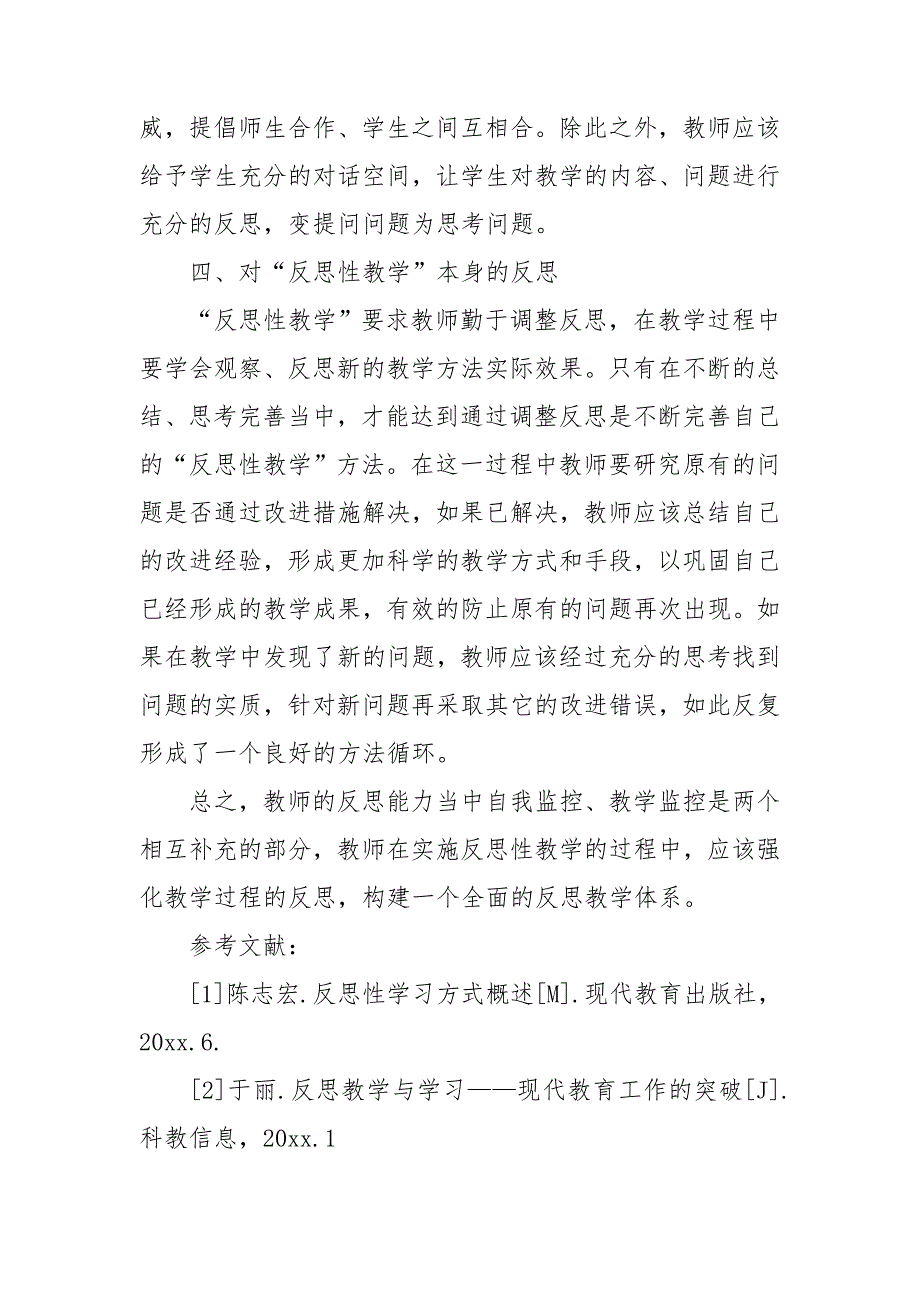 威，提倡师生合作、学生之间互相合。除此之外，教师应该
给予学生充分的对话空间，让学生对教学的内容、问题进行
充分的反思，变提问问题为思考问题。
四、对“反思性教学”本身的反思
“反思性教学”要求教师勤于调整反思，在教学过程中
要学会观察、反思新的教学方法实际效果。只有在不断的总
结、思考完善当中，才能达到通过调整反思是不断完善自己
的“反思性教学”方法。在这一过程中教师要研究原有的问
题是否通过改进措施解决，如果已解决，教师应该总结自己
的改进经验，形成更加科学的教学方式和手段，以巩固自己
已经形成的教学成果，有效的防止原有的问题再次出现。如
果在教学中发现了新的问题，教师应该经过充分的思考找到
问题的实质，针对新问题再采取其它的改进错误，如此反复
形成了一个良好的方法循环。
总之，教师的反思能力当中自我监控、教学监控是两个
相互补充的部分，教师在实施反思性教学的过程中，应该强
化教学过程的反思，构建一个全面的反思教学体系。
参考文献：
[1]陈志宏.反思性学习方式概述[M].现代教育出版社，
20xx.6.
[2]于丽.反思教学与学习——现代教育工作的突破[J].
科教信息，20xx.1